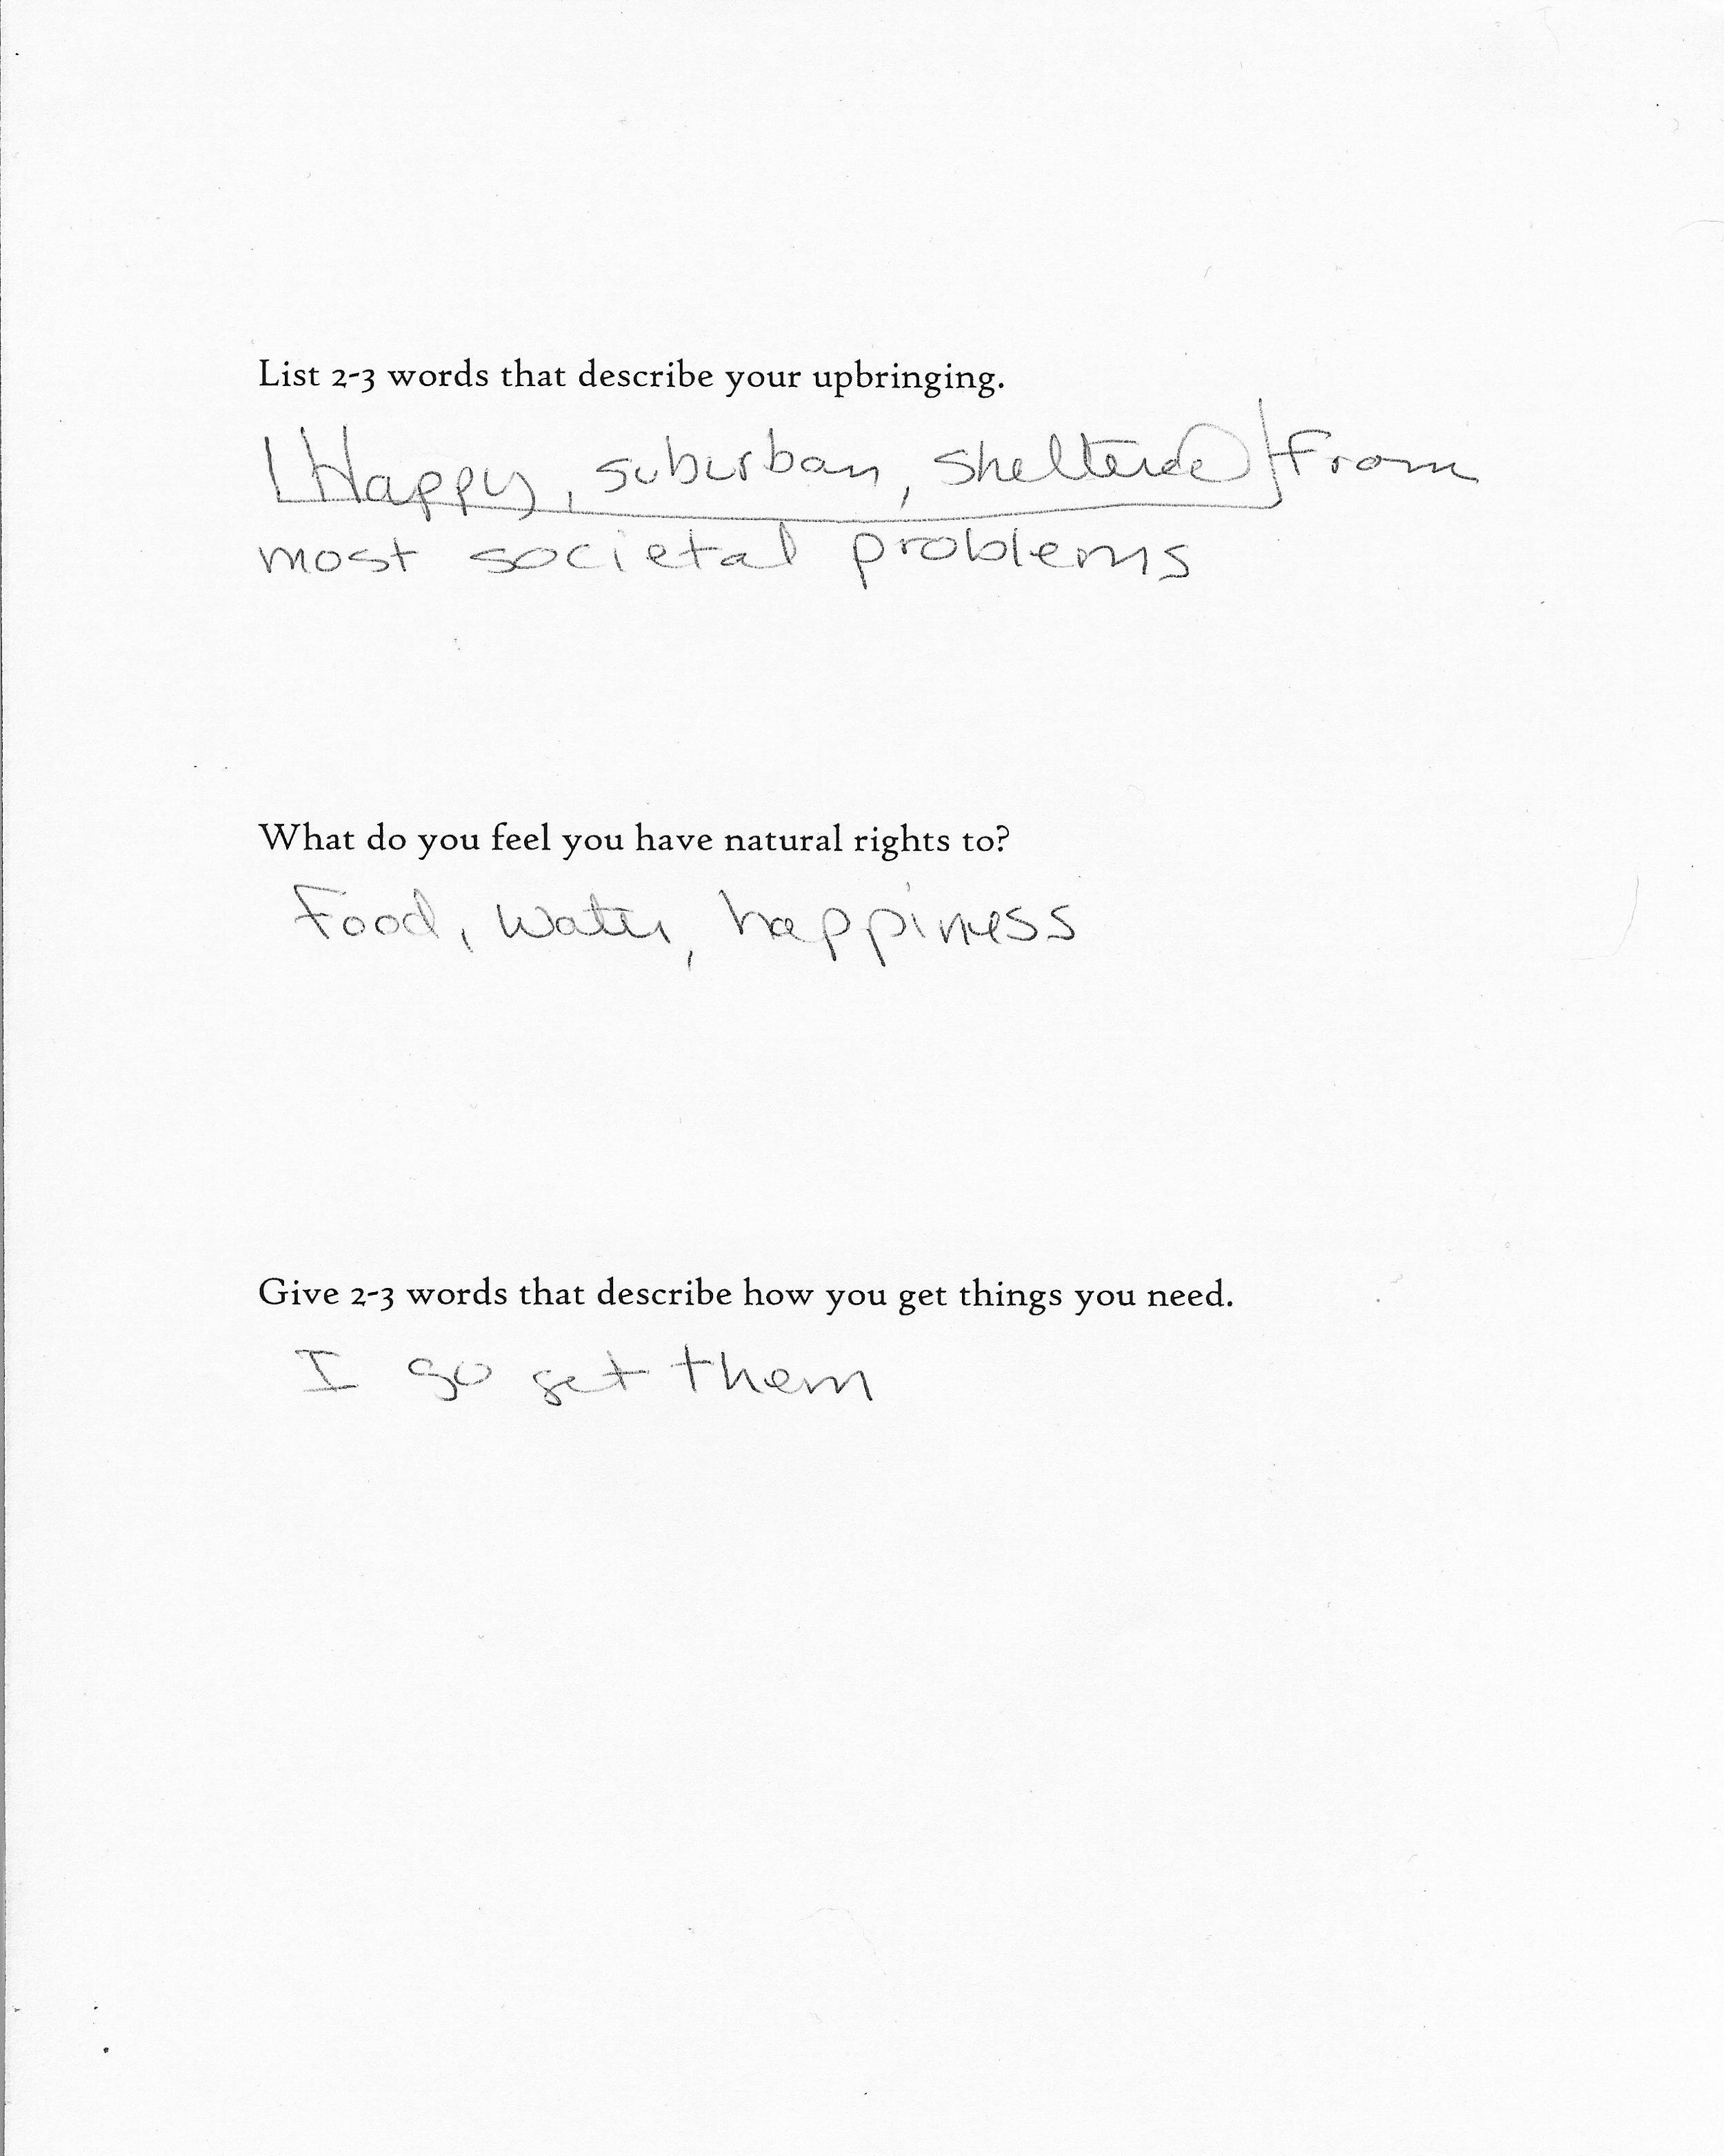 List 2-3 words that describe your upbringing.
Happy, suburban, sheltered from
most societal problems
What do you feel you have natural rights to?
Food, water, happiness
Give 2-3 words that describe how you get things you need.
I go get them